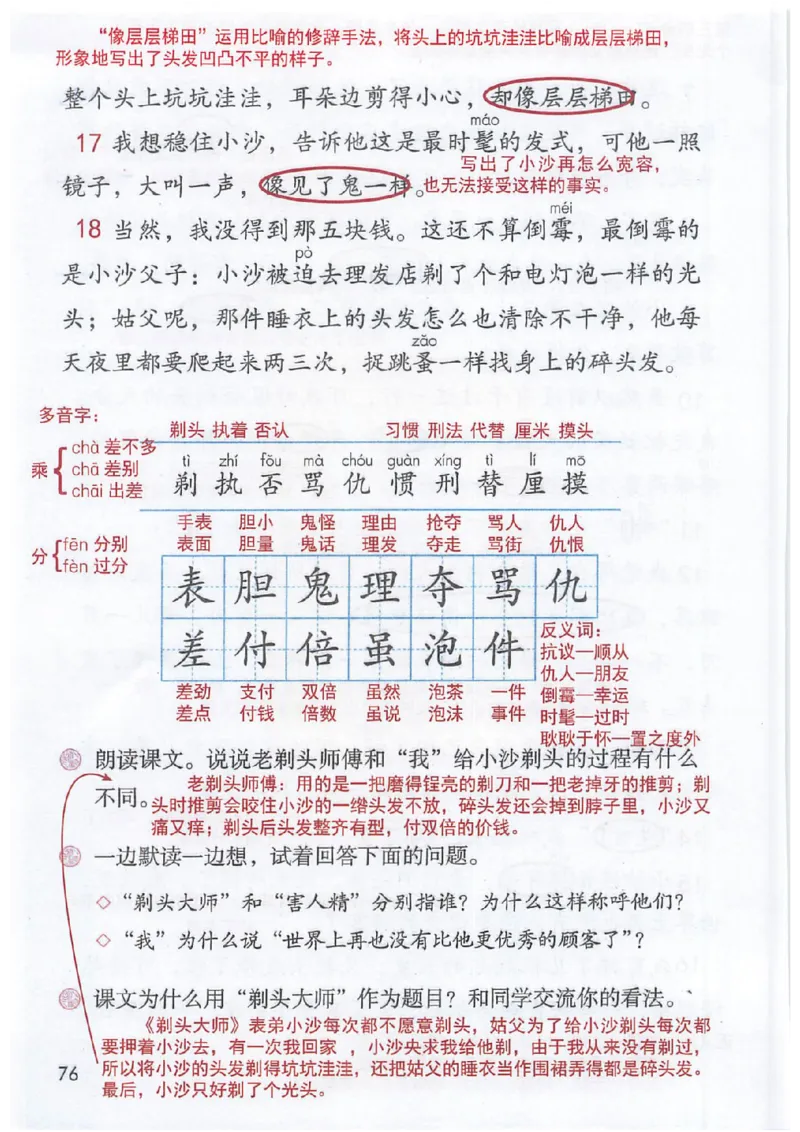 “像层层梯田”运用比喻的修辞手法，将头上的坑坑洼洼比喻成层层梯田，
形象地写出了头发凹凸不平的样子。
整个头上坑坑洼洼，耳朵边剪得小心，却像层层梯田。
máo
17 我想稳住小沙，告诉他这是最时髦的发式，可他一照
写出了小沙再怎么宽容，
镜子，大叫一声，像见了鬼一样。也无法接受这样的事实。
méi
18 当然，我没得到那五块钱。这还不算倒霉，最倒霉的
pò
是小沙父子：小沙被迫去理发店剃了个和电灯泡一样的光
头；姑父呢，那件睡衣上的头发怎么也清除不干净，他每
zǎo
天夜里都要爬起来两三次，捉跳蚤一样找身上的碎头发。
多音字：
剃头 执着 否认 习惯 刑法 代替 厘米 摸头
乘 chà 差不多
chā 差别
chāi 出差
tì zhí fǒu mà chóu guàn xíng tì lí mō
剃 执 否 骂 仇 惯 刑 替 厘 摸
手表 胆小 鬼怪 理由 抢夺 骂人 仇人
表面 胆量 鬼话 理发 夺走 骂街 仇恨
分 fēn 分别
fèn 过分
表 胆 鬼 理 夺 骂 仇
差 付 倍 虽 泡 件
差劲 支付 双倍 虽然 泡茶 一件
差点 付钱 倍数 虽说 泡沫 事件
反义词：
抗议—顺从
仇人—朋友
倒霉—幸运
时髦—过时
耿耿于怀—置之度外
朗读课文。说说老剃头师傅和“我”给小沙剃头的过程有什么
不同。
老剃头师傅：用的是一把磨得锃亮的剃刀和一把老掉牙的推剪；剃
头时推剪会咬住小沙的一绺头发不放，碎头发还会掉到脖子里，小沙又
痛又痒；剃头后头发整齐有型，付双倍的价钱。
一边默读一边想，试着回答下面的问题。
◇“剃头大师”和“害人精”分别指谁？为什么这样称呼他们？
◇“我”为什么说“世界上再也没有比他更优秀的顾客了”？
课文为什么用“剃头大师”作为题目？和同学交流你的看法。
《剃头大师》表弟小沙每次都不愿意剃头，姑父为了给小沙剃头每次都
要押着小沙去，有一次我回家 ，小沙央求我给他剃，由于我从来没有剃过，
所以将小沙的头发剃得坑坑洼洼，还把姑父的睡衣当作围裙弄得都是碎头发。
最后，小沙只好剃了个光头。
76